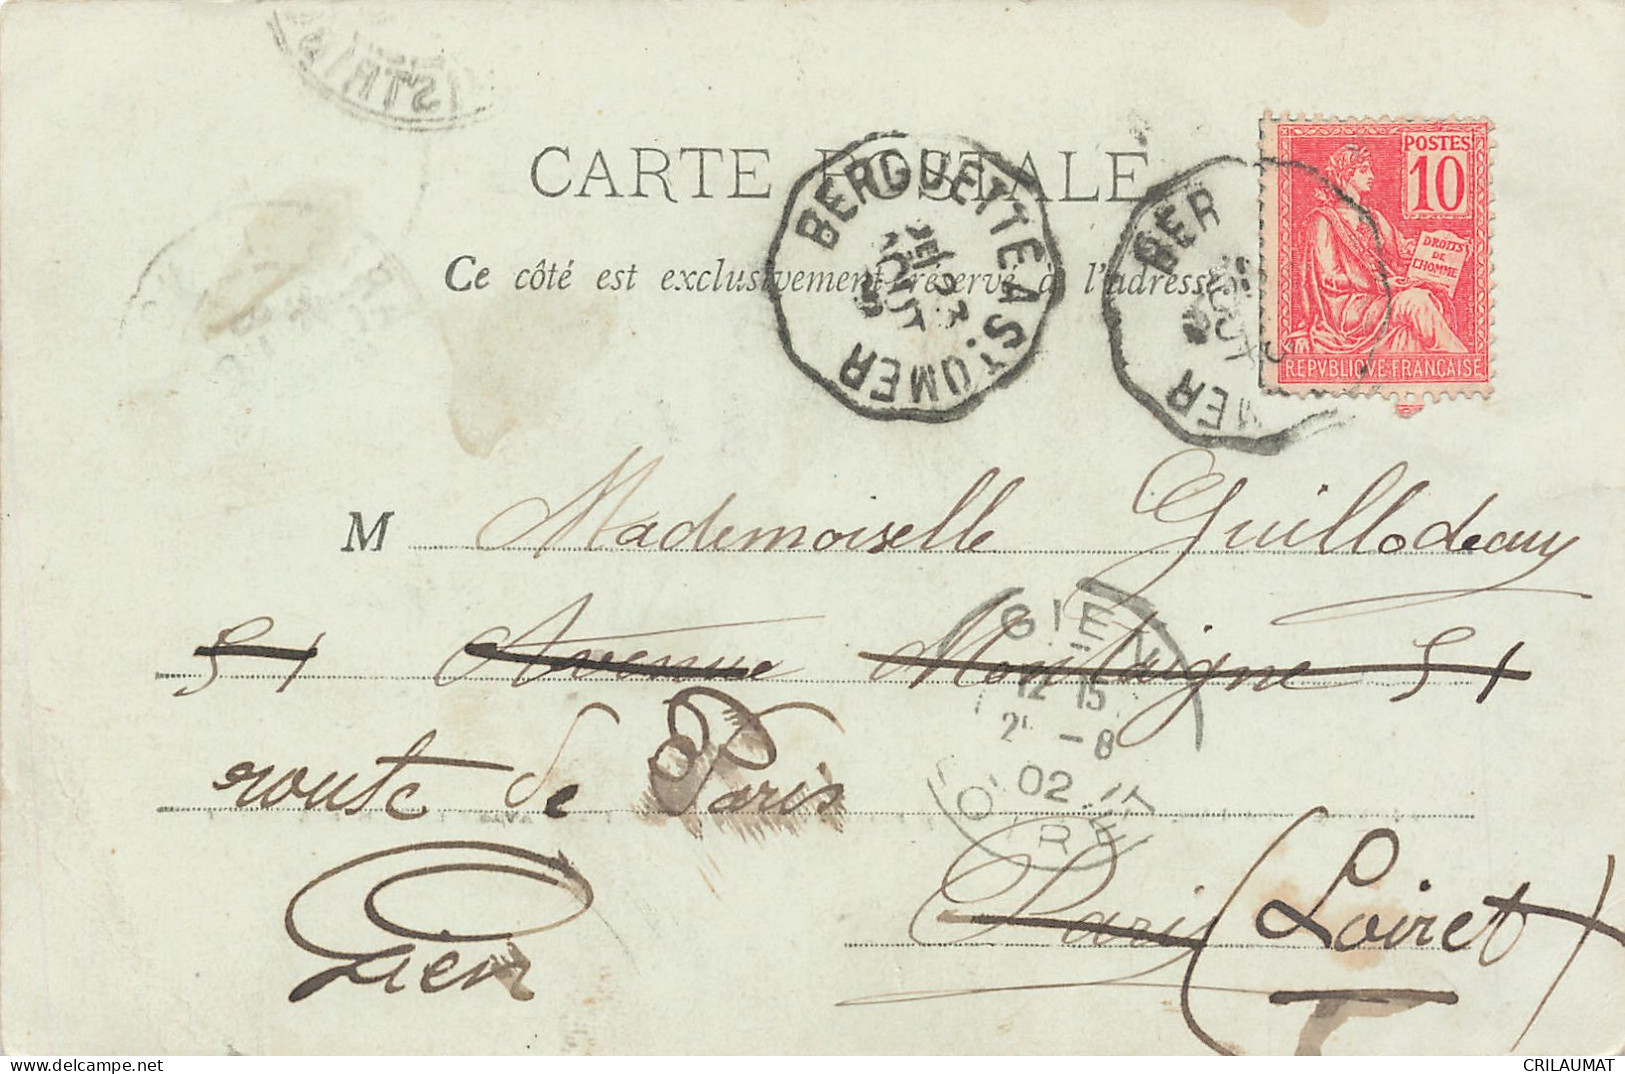 CARTE POSTALE
Ce côté est exclusivement réservé à l'adresse
POSTES
10
DROITS
DE
L'HOMME
REPVBLIQVE FRANÇAISE
BERGUETTE A ST OMER
23
AOUT
BER
MER
M Mademoiselle Guillodeau
51 Avenue Montaigne 51
route de Paris
Gien
Paris (Loiret)
GIEN
12 15
-8
02
LOIRET
CRILAUMAT